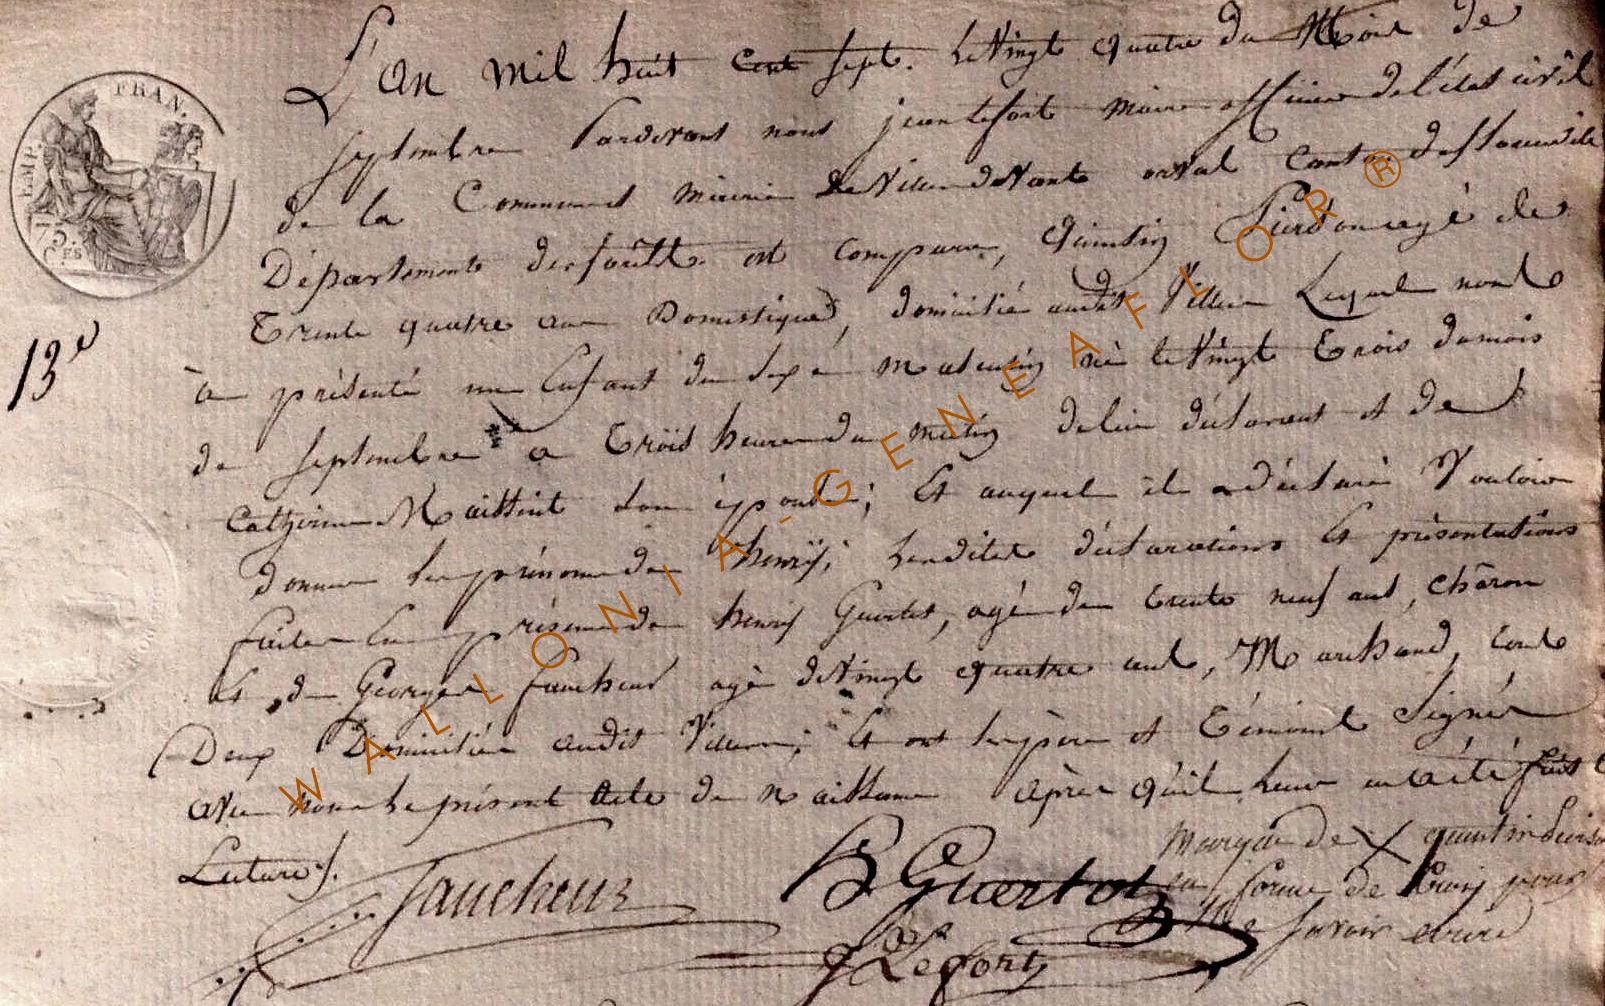 L'an mil huit cent sept. le Vingt quatre du Mois de
septembre Pardevant nous jean lefort maire officier de l'état civil
de la Commune mairie de Viller devant orval canton de florenville
Département des forêts est comparu, Quintin Pierson agé de
Trente quatre ans Domestique, domicilié audit Viller Lequel nous
à présenté un Enfant du sexe masculin né le Vingt Trois du mois
13e
de septembre a Trois heures du matin de lui déclarant et de
Catherine son épouse; Et auquel il a déclaré Vouloir
donner les prénoms de henry; lesdites déclarations Et présentations
faites En présence de henry Guertot, agé de trente neuf ans, Charon
Et de George faucheur agé de Vingt quatre ans, Marchand, tous
Deux Domiciliés audit Viller; Et ont les père et Témoins Signés
avec nous le présent Acte de Naissance après qu'il leur en a été fait
Lecture ./.
FRAN.
EMP.
75
CES
marque de X quintin
en forme de croix pour
ne savoir ecrire
faucheur
H Guertot
J Lefort
WALLONIA-GENEAFLOR®